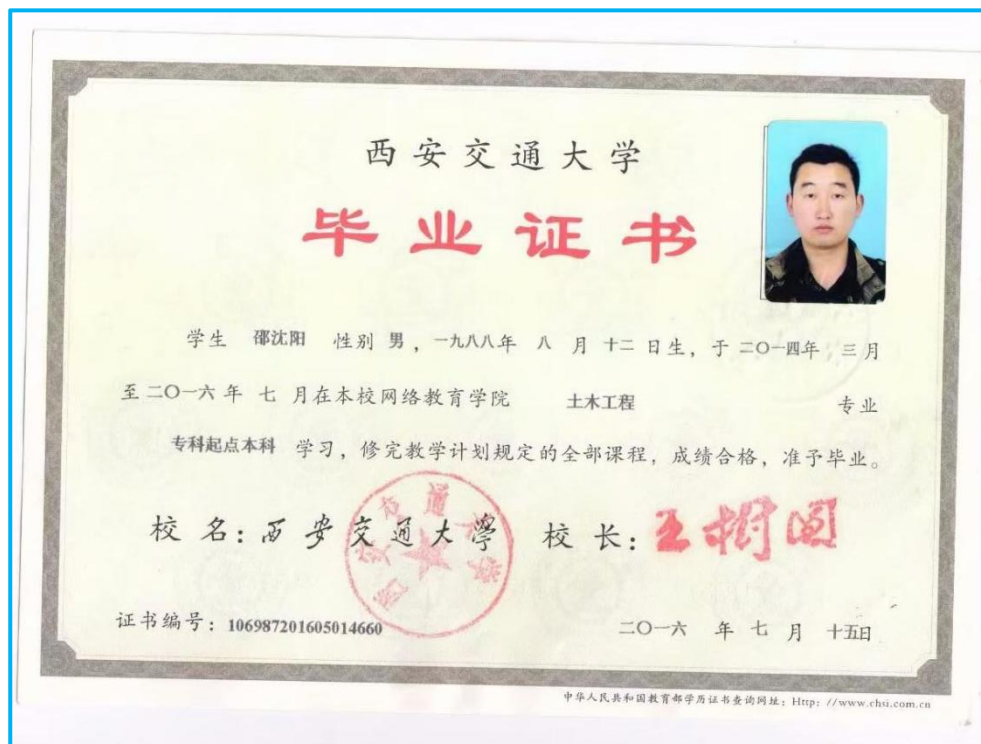 西安交通大学
毕业证书
学生 邵沈阳 性别 男，一九八八年 八 月 十二 日生，于 二〇一四年 三月
至 二〇一六 年 七 月在本校网络教育学院 土木工程 专业
专科起点本科 学习，修完教学计划规定的全部课程，成绩合格，准予毕业。
校 名：西安交通大學 校 长：王树国
西安交通大学
证书编号：106987201605014660 二〇一六 年 七 月 十五日
中华人民共和国教育部学历证书查询网址：Http：//www.chsi.com.cn